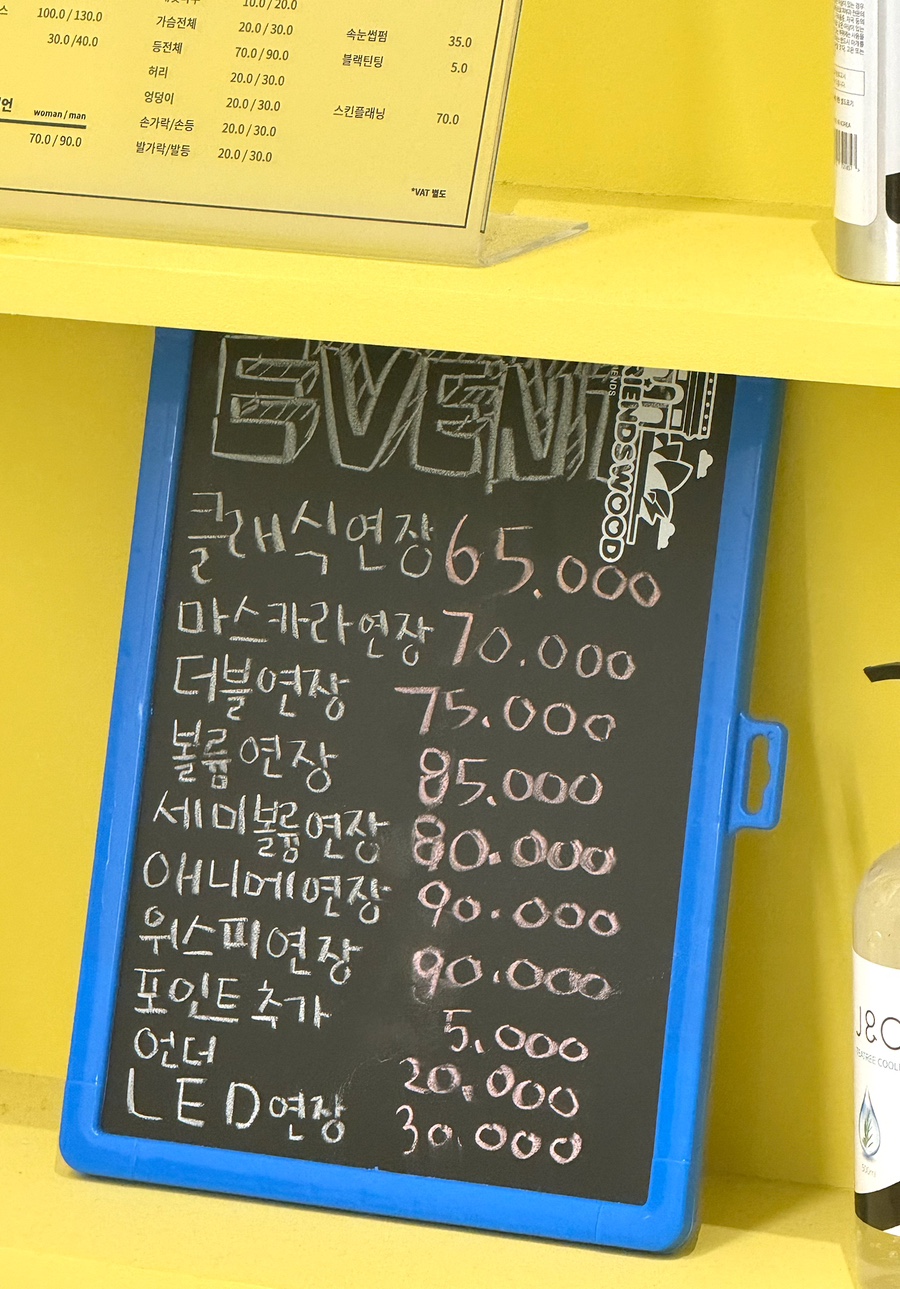 100.0 / 130.0
30.0 /40.0
woman / man
70.0 / 90.0
10.0 / 20.0
가슴전체 20.0 / 30.0
등전체 70.0 / 90.0
허리 20.0 / 30.0
엉덩이 20.0 / 30.0
손가락/손등 20.0 / 30.0
발가락/발등 20.0 / 30.0
속눈썹펌 35.0
블랙틴팅 5.0
스킨플래닝 70.0
*VAT 별도
EVENT
FRIENDSWOOD
클래식연장 65.000
마스카라연장 70.000
더블연장 75.000
볼륨연장 85.000
세미볼륨연장 80.000
애니메연장 90.000
위스피연장 90.000
포인트 추가 5.000
언더 20.000
LED연장 30.000